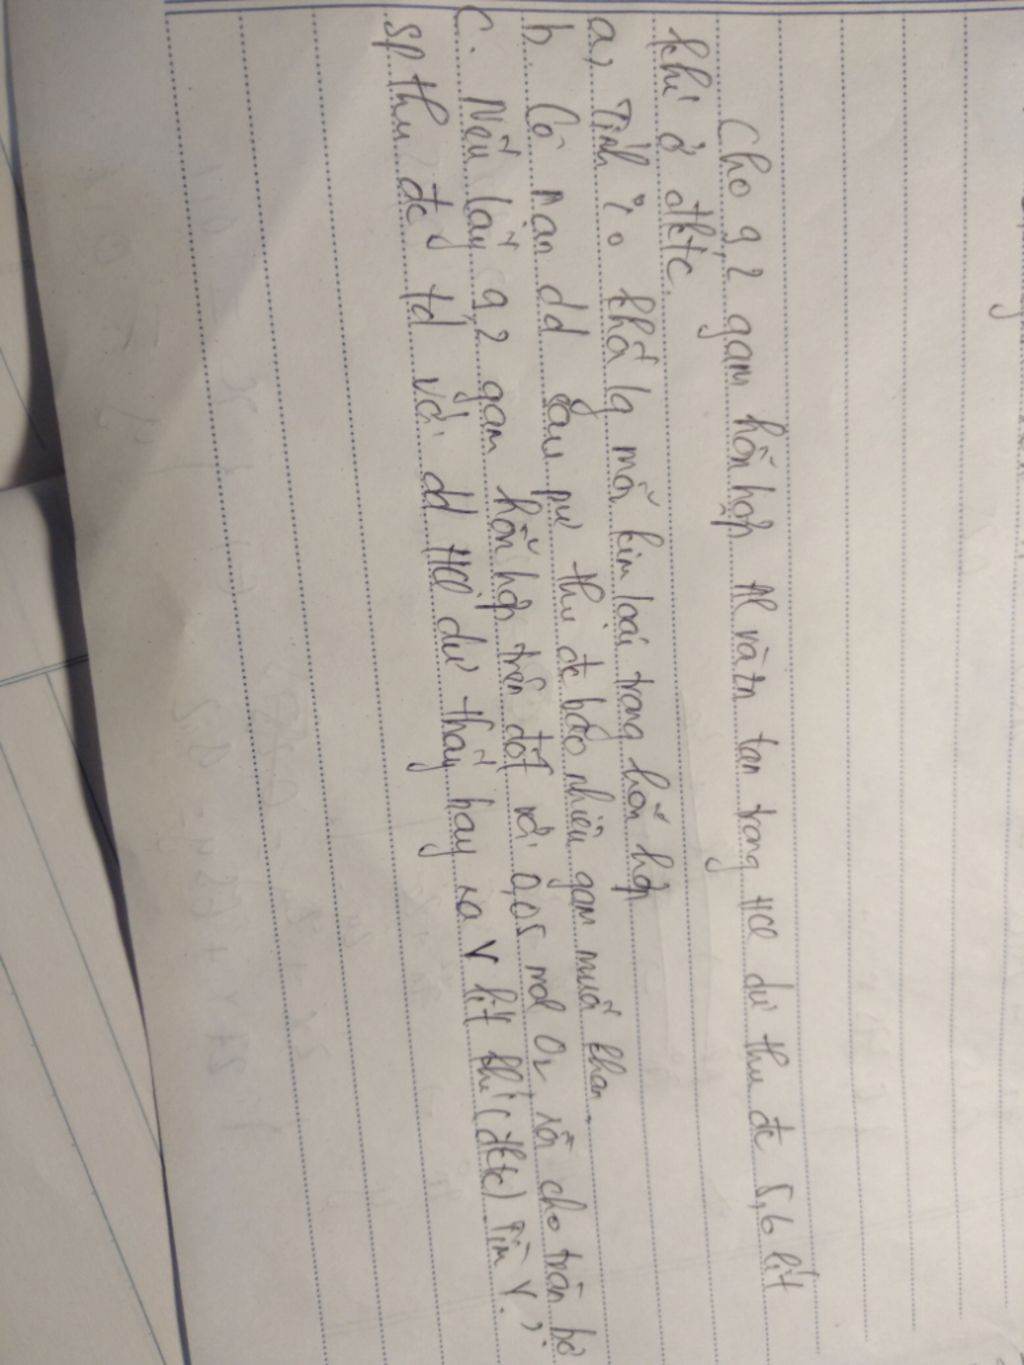 Cho 9,2 gam hỗn hợp Al và Zn tan trong HCl dư thu đc 5,6 lít
khí ở đktc.
a, Tính % khố lg mỗi kim loại trong hỗn hợp
b. Cô nạn dd sau pư thu đc bao nhiêu gam muối khan.
c. Nếu lấy 9,2 gam hỗn hợp trên đốt với 0,05 mol O2 rồi cho toàn bộ
sp thu đc td với dd HCl dư thấy bay ra V lít khí (đktc) Tìm V.?